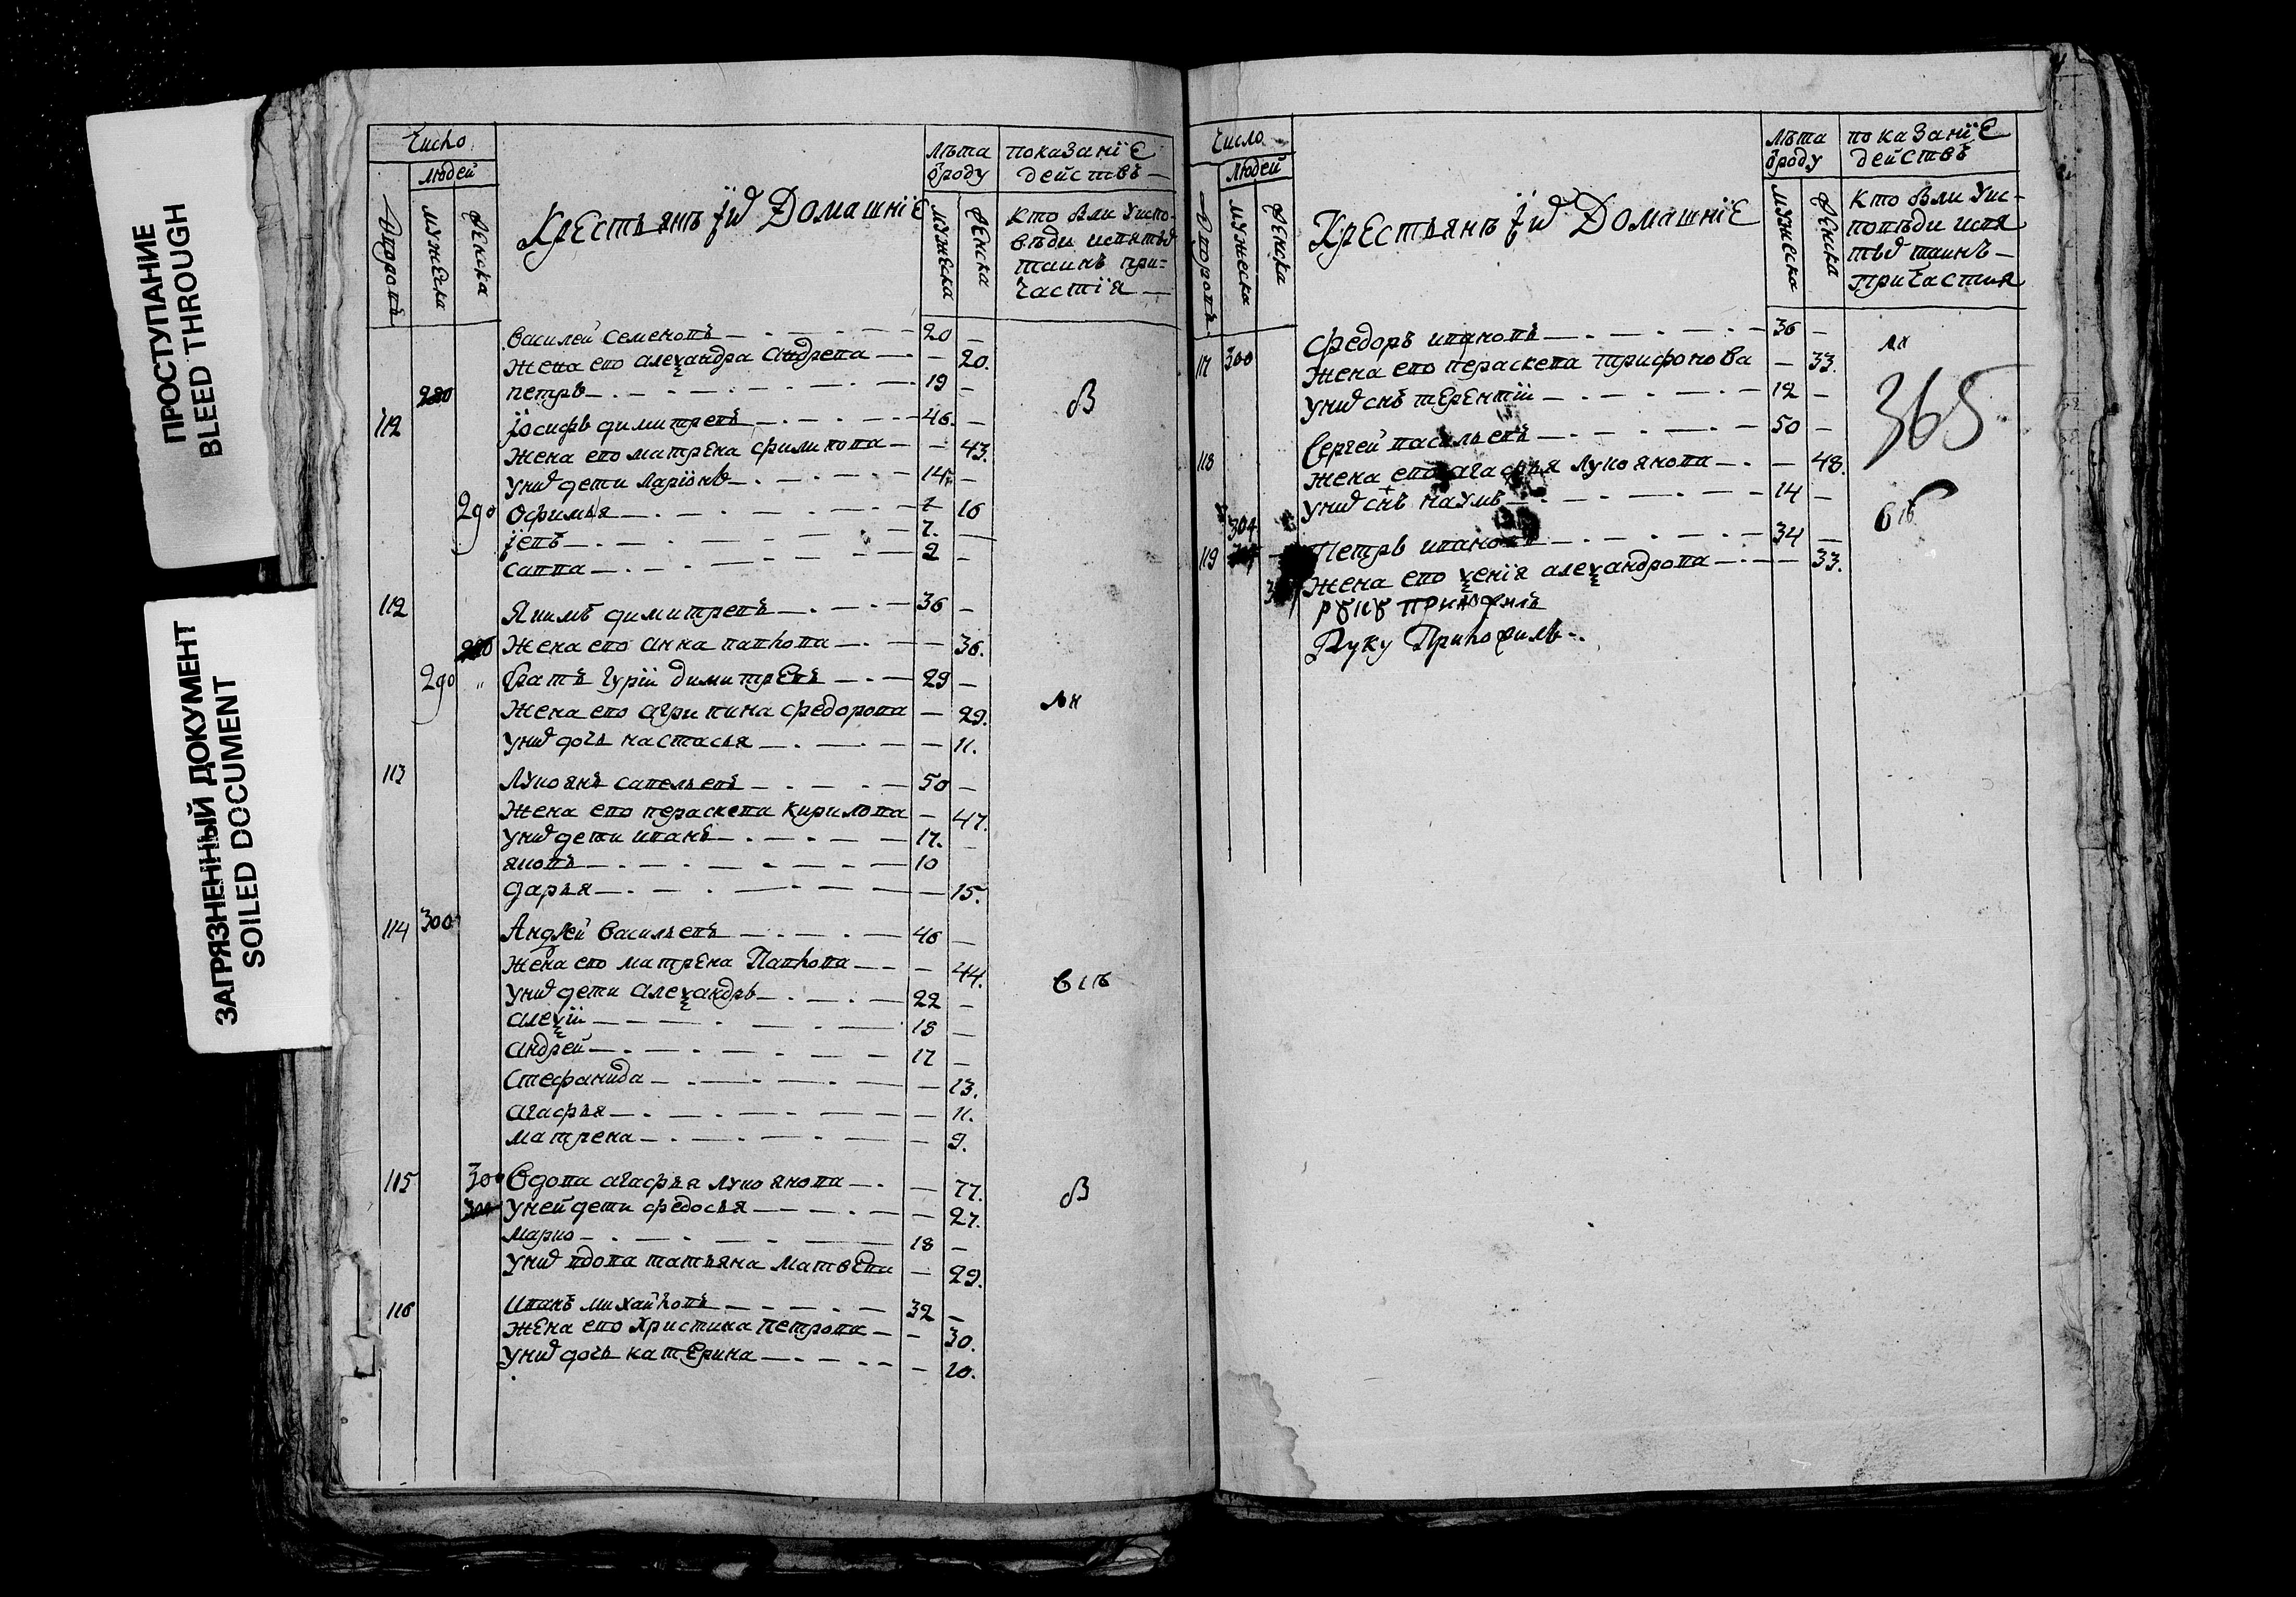 ПРОСТУПАНИЕ
BLEED THROUGH
ЗАГРЯЗНЕННЫЙ ДОКУМЕНТ
SOILED DOCUMENT
Число
людей
дворовъ
мужеска
женска
Крестьянъ ихъ Домашніе
лѣта
ѿроду
мужеска
женска
показаніе
действъ
кто былъ уиспо-
вѣди испятыхъ
таинъ при-
частія
Василей семеновъ 20 —
жена его алеѯандра андрева — 20.
280 петръ 19 —
112 іосифъ димитревъ 46. —
жена его матрена филипова — 43.
уних дети ларіонъ 14 —
290 офимья 16
іевъ 7. —
савва 2 —
112 якимъ димитревъ 36 —
жена его анна павлова — 36.
290 братъ гурій димитревъ 29 —
жена его агрипина федорова — 29.
уних дочь настасья — 11.
113 Лукоянъ савельевъ 50 —
жена его пераскева кирилова — 47.
уних дети иванъ 17. —
яковъ 10
дарья — 15.
114 300 Андрей васильевъ 46 —
жена его матрена Павлова — 44.
уних дети алеѯандръ 22 —
алеѯій 18 —
андрей 17 —
стефанида — 13.
агафья — 11.
матрена — 9.
115 300 Вдова агафья лукоянова — 77.
уней дети федосья — 27.
марко 18 —
уних вдова татьяна матвева — 29.
116 Иванъ михайловъ 32 —
жена его христина петрова — 30.
уних дочь катерина — 10.
Число
людей
дворовъ
мужеска
женска
Крестьянъ ихъ Домашніе
лѣта
ѿроду
мужеска
женска
показаніе
действъ
кто былъ уис-
поведи испя
тыхъ таинъ
причастия
федоръ ивановъ 36 —
117 300 жена его пераскева трифонова — 33.
уних снъ терентій 12 —
365
Сергей васильевъ 50 —
118 жена его агафья лукоянова — 48.
уних снъ наумъ 14 —
304
119 Петръ ивановъ 34 —
жена его ѯенія алеѯандрова — 33.
руку приложилъ
Руку Приложилъ